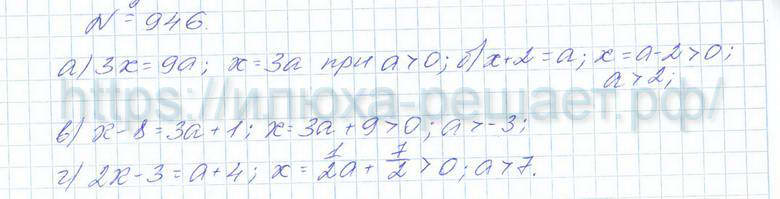 № 946.
а) 3x = 9a; x = 3a при a > 0; б) x + 2 = a; x = a - 2 > 0;
a > 2;
https://илюха-решает.рф/
в) x - 8 = 3a + 1; x = 3a + 9 > 0; a > -3;
г) 2x - 3 = a + 4; x = 1/2a + 7/2 > 0; a > 7.